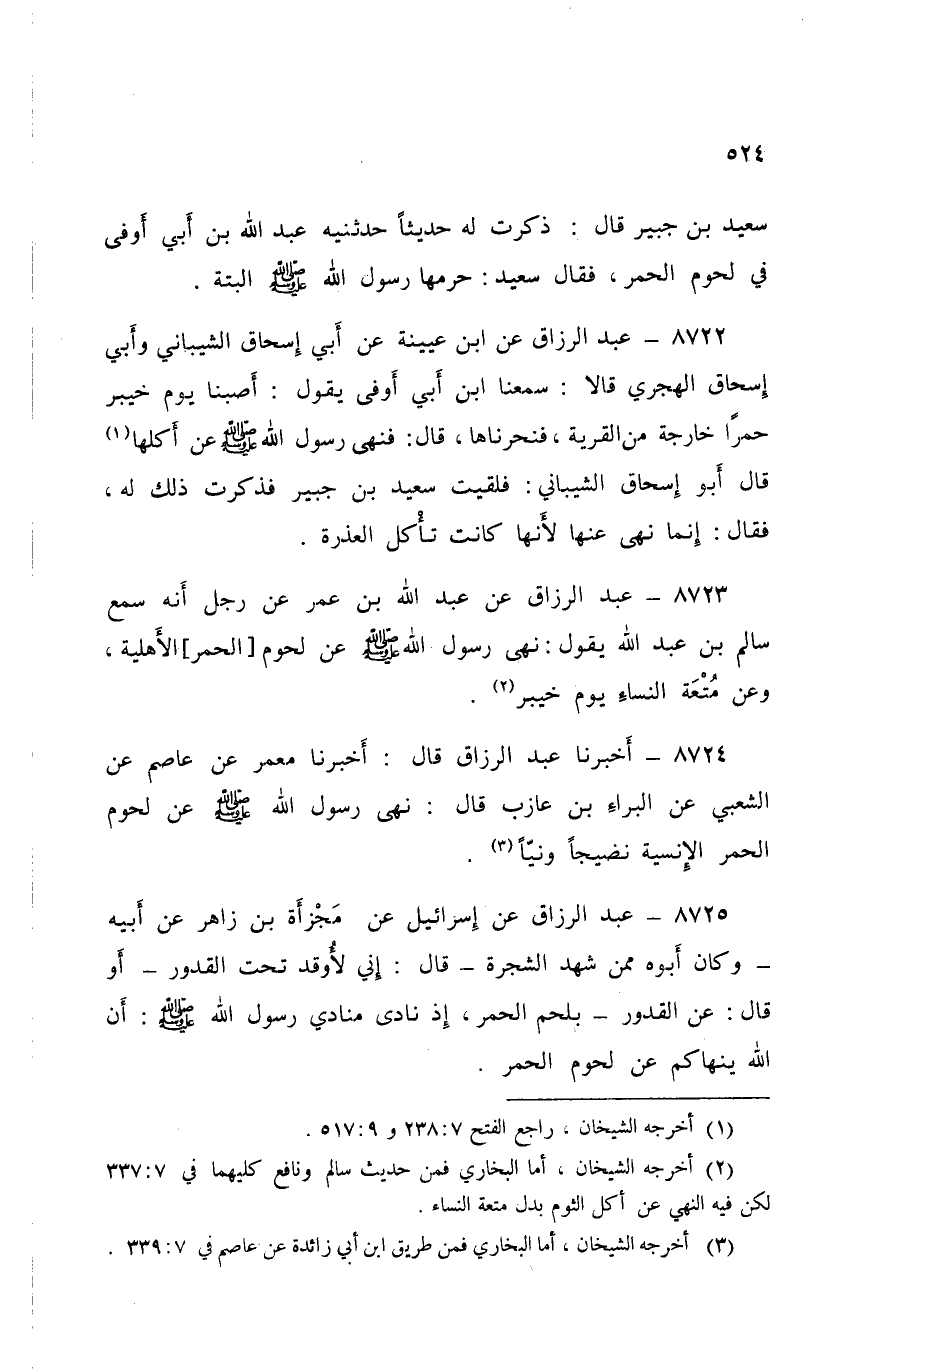 ٥٢٤
سعيد بن جبير قال : ذكرت له حديثاً حدثنيه عبد الله بن أَبي أَوفى
في لحوم الحمر ، فقال سعيد : حرمها رسول الله ﷺ البتة .
٨٧٢٢ – عبد الرزاق عن ابن عيينة عن أَبي إسحاق الشيباني وأَبي
إسحاق الهجري قالا : سمعنا ابن أَبي أَوفى يقول : أَصبنا يوم خيبر
حمرًا خارجة من القرية ، فنحرناها ، قال : فنهى رسول الله ﷺ عن أَكلها (١)
قال أَبو إسحاق الشيباني : فلقيت سعيد بن جبير فذكرت ذلك له ،
فقال : إنما نهى عنها لأَنها كانت تأْكل العذرة .
٨٧٢٣ – عبد الرزاق عن عبد الله بن عمر عن رجل أَنه سمع
سالم بن عبد الله يقول : نهى رسول الله ﷺ عن لحوم [الحمر] الأَهلية ،
وعن مُتْعَة النساءِ يوم خيبر (٢) .
٨٧٢٤ – أَخبرنا عبد الرزاق قال : أَخبرنا معمر عن عاصم عن
الشعبي عن البراءِ بن عازب قال : نهى رسول الله ﷺ عن لحوم
الحمر الإِنسية نضيجاً ونيّاً (٣) .
٨٧٢٥ – عبد الرزاق عن إسرائيل عن مَجْزأَة بن زاهر عن أَبيه
– وكان أَبوه ممن شهد الشجرة – قال : إني لأُوقد تحت القدور – أَو
قال : عن القدور – بلحم الحمر ، إذ نادى منادي رسول الله ﷺ : أَن
الله ينهاكم عن لحوم الحمر .
(١) أخرجه الشيخان ، راجع الفتح ٧ : ٢٣٨ و ٩ : ٥١٧ .
(٢) أخرجه الشيخان ، أما البخاري فمن حديث سالم ونافع كليهما في ٧ : ٣٣٧
لكن فيه النهي عن أكل الثوم بدل متعة النساء .
(٣) أخرجه الشيخان ، أما البخاري فمن طريق ابن أبي زائدة عن عاصم في ٧ : ٣٣٩ .